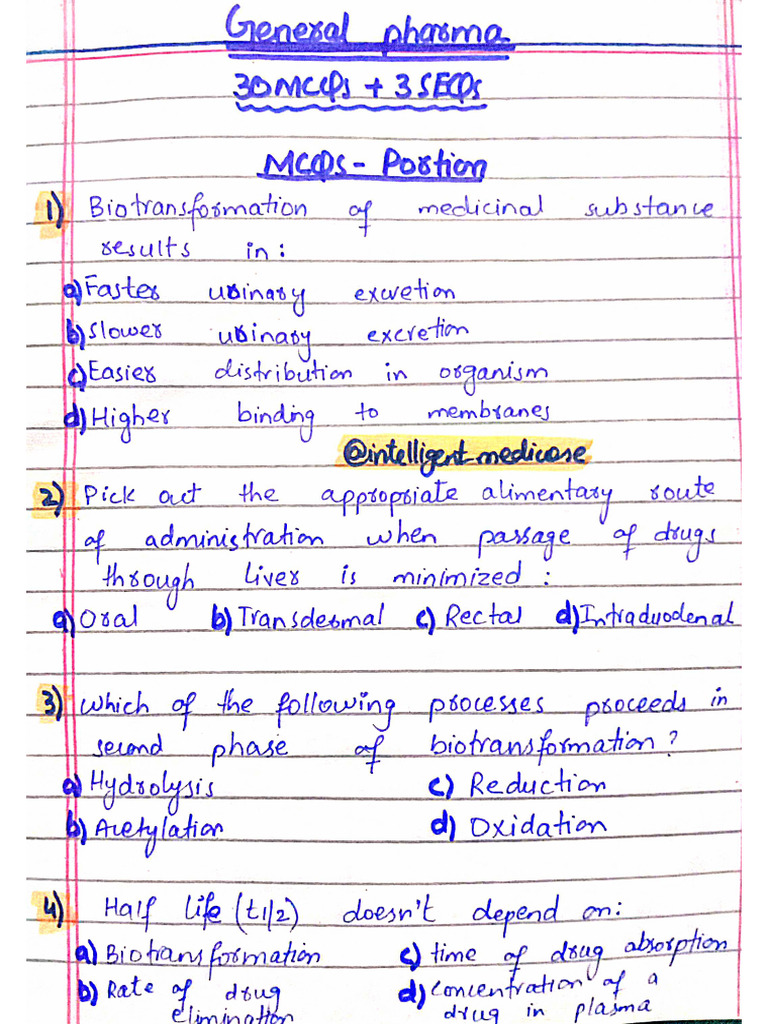 General pharma
30MCQs + 3SEQs
MCQs - Portion
1) Biotransformation of medicinal substance
results in:
a) Faster urinary excretion
b) Slower urinary excretion
c) Easier distribution in organism
d) Higher binding to membranes
@intelligent_medicose
2) Pick out the appropriate alimentary route
of administration when passage of drugs
through liver is minimized :
a) Oral b) Transdermal c) Rectal d) Intraduodenal
3) Which of the following processes proceeds in
second phase of biotransformation?
a) Hydrolysis c) Reduction
b) Acetylation d) Oxidation
4) Half life (t1/2) doesn't depend on:
a) Biotransformation c) time of drug absorption
b) Rate of drug elimination d) Concentration of a drug in plasma